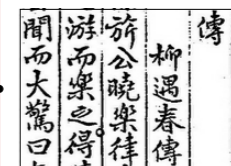 傳
柳遇春傳
公曉樂律
游而樂之得
聞而大驚曰